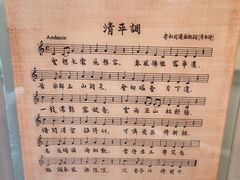 清平調
Andante
雲想衣裳花想容 春風拂檻露華濃
若非群玉山頭見 會向瑤臺月下逢
一枝紅豔露凝香 雲雨巫山枉斷腸
借問漢宮誰得似 可憐飛燕倚新妝
名花傾國兩相歡 常得君王帶笑看
解釋春風無限恨 沉香亭北倚闌干